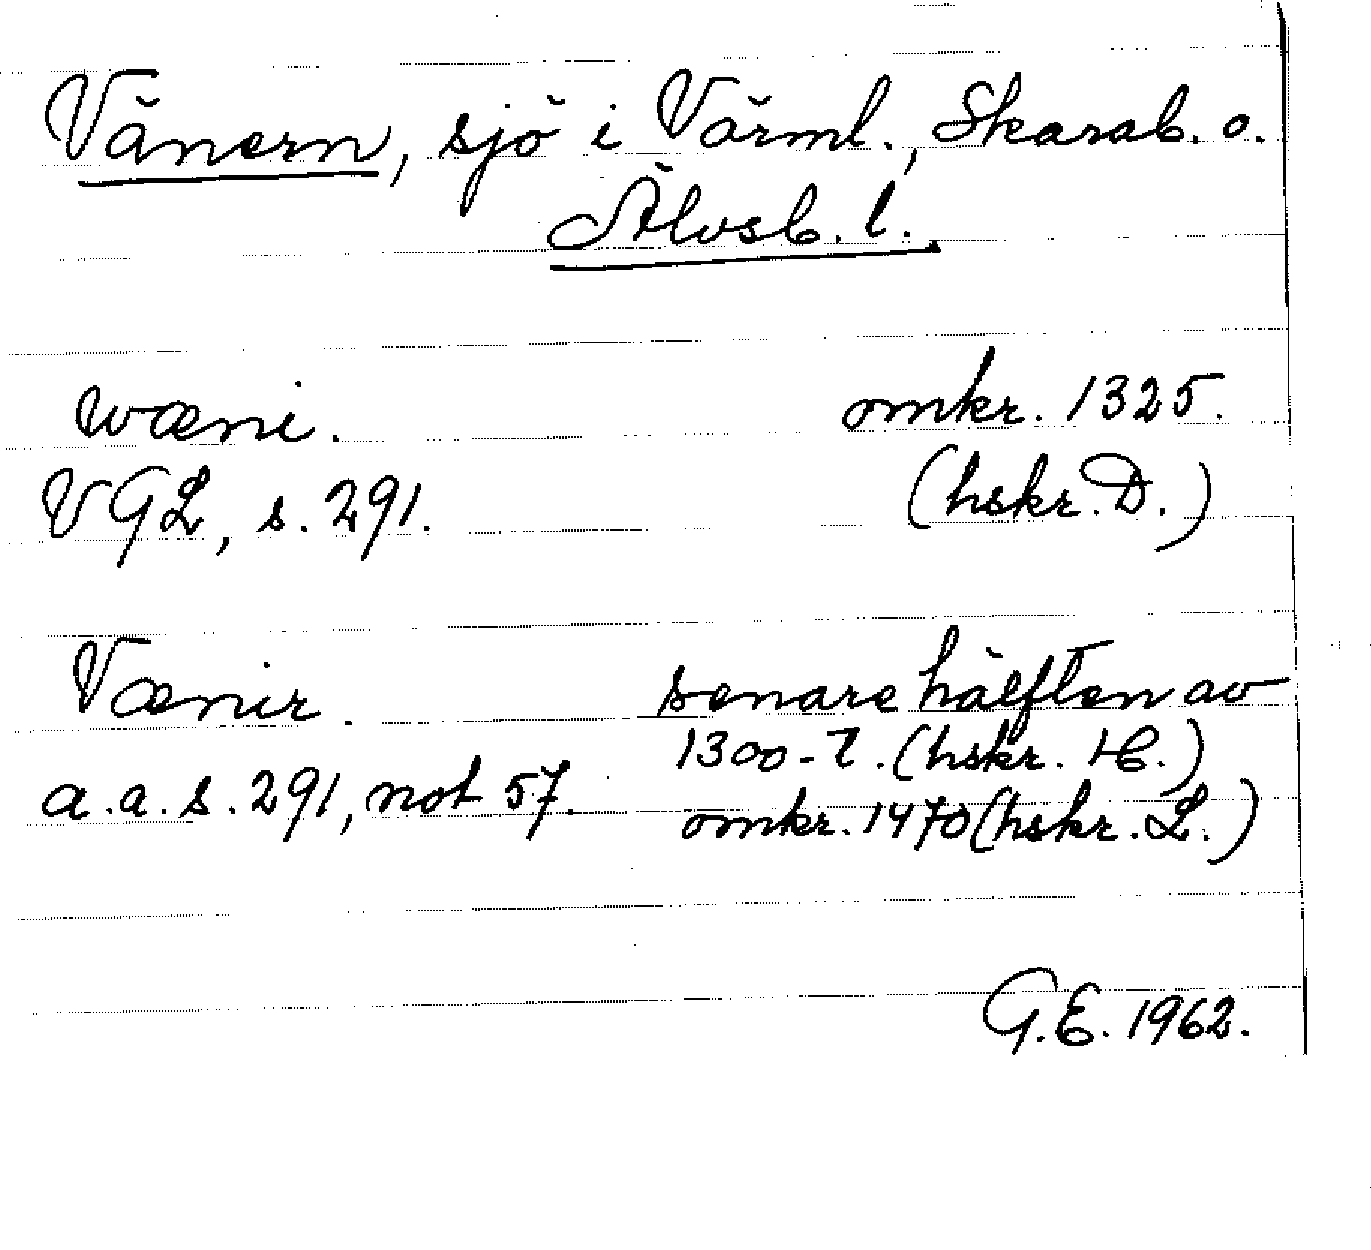 Vänern, sjö i Värml., Skarab. o.
Älvsb. l.
wæni. omkr. 1325.
VGL, s. 291. (hskr. D.)
Vænir. senare hälften av
1300-t. (hskr. H.)
a.a. s. 291, not 57. omkr. 1470 (hskr. L.)
G.E. 1962.